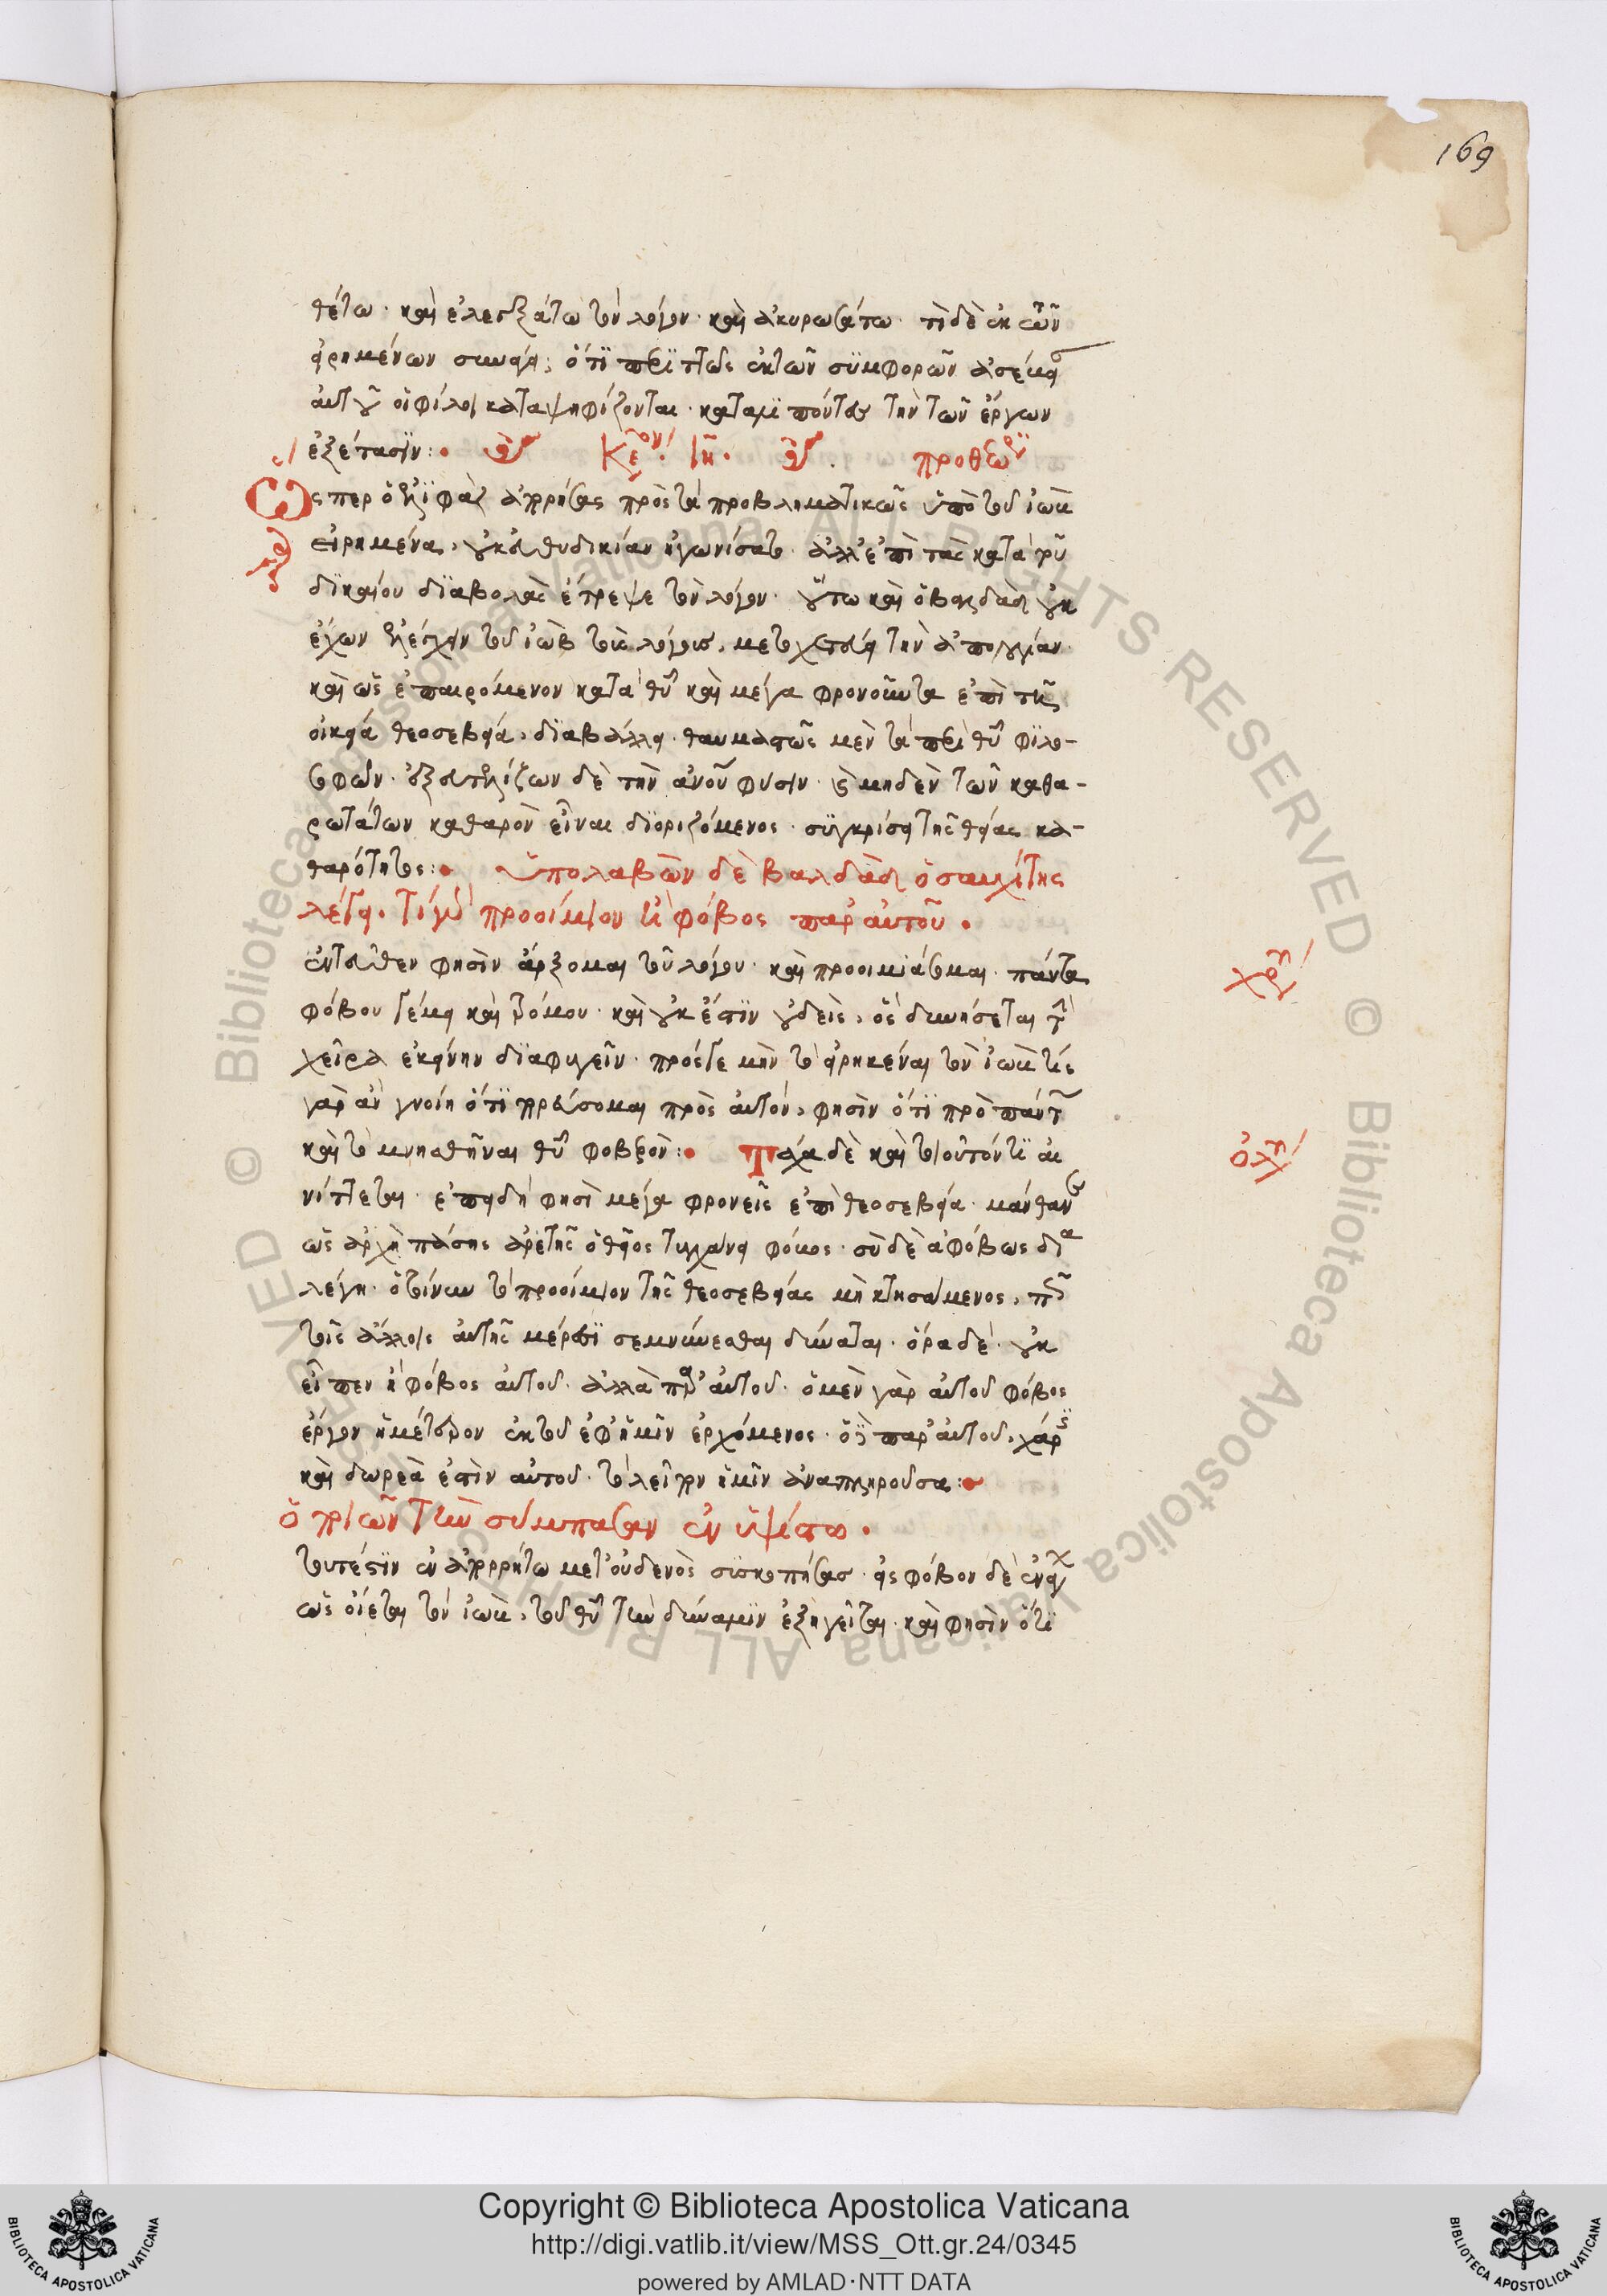 169
θέτω· καὶ ἐλεγξάτω τὸν λόγον· καὶ ἀκυρωσάτω· τί δὲ ἐκ τῶν
εἰρημένων συνάγει; ὅτι περιττῶς ἐκ τῶν συμφορῶν ἀσέβειαν
αὐτοῦ οἱ φίλοι καταψηφίζονται· καταλιπόντες τὴν τῶν ἔργων
ἐξέτασιν:
Κεφ. ιη. προθεωρία
Ὥσπερ ὁ ἐλιφὰζ ἀπορήσας πρὸς τὰ προβληματικῶς ὑπὸ τοῦ ἰὼβ
εἰρημένα, οὐκ εὐθυδικίαν ἠγωνίσατο· ἀλλ' ἐπὶ τὰς κατὰ τοῦ
δικαίου διαβολὰς ἔτρεψε τὸν λόγον· οὕτω καὶ ὁ βαλδὰδ οὐκ
ἔχων ἐλέγχειν τοῦ ἰὼβ τοὺς λόγους, μετοχετεύει τὴν ἀπολογίαν·
καὶ ὡς ἐπαιρόμενον κατὰ θεοῦ καὶ μέγα φρονοῦντα ἐπὶ τῇ
οἰκείᾳ θεοσεβείᾳ, διαβάλλει· θαυμαστῶς μὲν τὰ περὶ θεοῦ φιλο-
σοφῶν· ἐξευτελίζων δὲ τὴν ἀνου φύσιν· καὶ μηδὲν τῶν καθα-
ρωτάτων καθαρὸν εἶναι διοριζόμενος· συγκρίσει τῆς θείας κα-
θαρότητος: ὑπολαβὼν δὲ βαλδὰδ ὁ σαυχίτης
λέγει· τί γὰρ προοίμιον ἢ φόβος παρ' αὐτοῦ·
ἐντεῦθεν φησὶν ἄρξομαι τοῦ λόγου· καὶ προοιμιάσομαι· πάντα
φόβου γέμει καὶ τρόμου· καὶ οὐκ ἔστιν οὐδεὶς, ὃς δυνήσεται τὴν
χεῖρα ἐκείνην διαφυγεῖν· πρόσγε μὴν τὸ εἰρηκέναι τὸν ἰὼβ τίς
γὰρ ἂν γνοίη ὅτι πρ σομαι πρὸς αὐτόν, φησὶν ὅτι πρὸ πάντων
καὶ τὸ μνησθῆναι θεοῦ φοβερόν: Τάχα δὲ καὶ τοιοῦτόν τι αἰ
νίττεται· ἐπειδὴ φησὶ μέγα φρονεῖς ἐπὶ θεοσεβείᾳ· μάνθανε
ὡς ἀρχὴ πάσης ἀρετῆς ὁ θεῖος τυγχάνει φόβος· σὺ δὲ ἀφόβως δια
λέγῃ· ὁ τοίνυν τὸ προοίμιον τῆς θεοσεβείας μὴ κτησάμενος, πῶς
τοῖς ἄλλοις αὐτῆς μέρεσι σεμνύνεσθαι δύναται· ὅρα δὲ· οὐκ
εἶπεν ἢ φόβος αὐτοῦ· ἀλλὰ παρ' αὐτοῦ· ὁ μὲν γὰρ αὐτοῦ φόβος
ἔργον ἡμέτερον ἐκ τοῦ ἐφ' ἡμῖν ἐρχόμενος· ὁ δὲ παρ' αὐτοῦ, χάρις
καὶ δωρεὰ ἐστὶν αὐτοῦ· τὸ λεῖπον ἡμῖν ἀναπληροῦσα:
ὁ ποιῶν τὴν σύμπασαν ἐν ὑψίστῳ·
τουτέστιν ἐν ἀπορρήτῳ μετ' οὐδενὸς συσκοπήσας· εἰς φόβον δὲ ἐνάγων
ὡς οἴεται τὸν ἰὼβ, τοῦ θεοῦ τὴν δύναμιν ἐξηγεῖται· καὶ φησὶν ὅτι
χρυ
ὀλυ
Copyright © Biblioteca Apostolica Vaticana
http://digi.vatlib.it/view/MSS_Ott.gr.24/0345
powered by AMLAD·NTT DATA